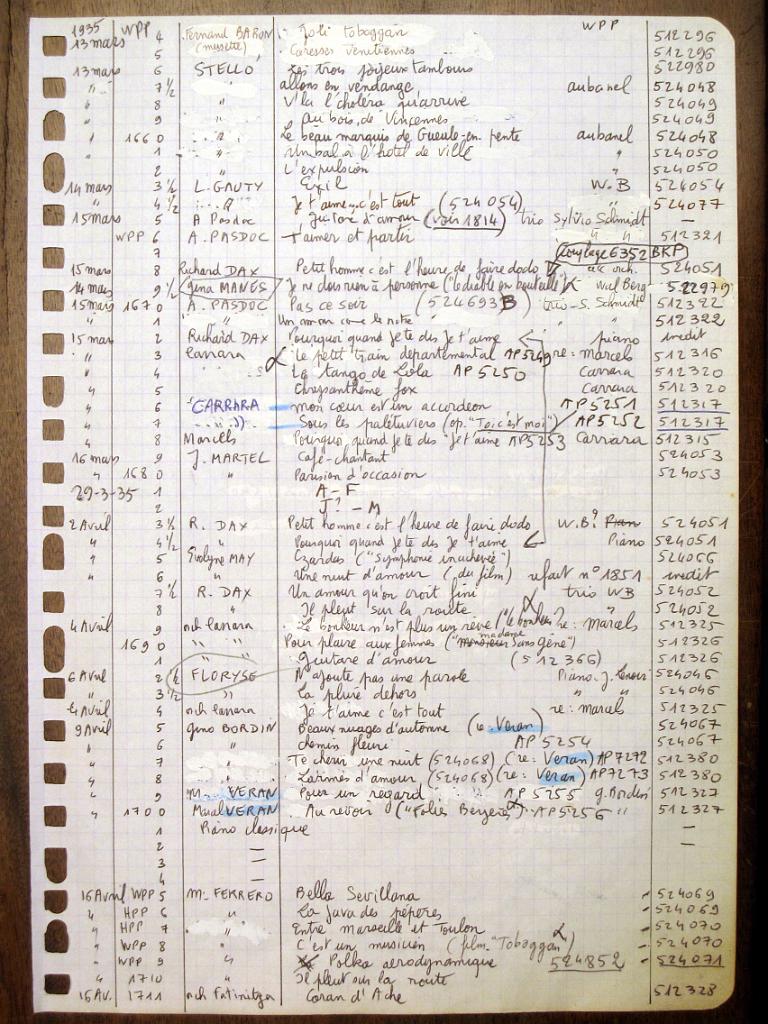 1935 WPP 4 Fernand BARON Joli toboggan WPP 512296
13 mars 5 (musette) Caresses vénitiennes 512296
13 mars 6 STELLO Les trois joyeux tambours 522980
" 7 ½ " allons en vendange aubanel 524048
" 8 " V'la l'choléra qu'arrive 524049
" 9 " au bois de Vincennes 524049
" 1660 " Le beau marquis de Gueule-en-pente aubanel 524048
" 1 " Un bal à l'hotel de ville " 524050
2 " L'expulsion " 524050
14 mars 3 ½ L. GAUTY Exil W.B 524054
" 4 ½ " Je t'aime... c'est tout (524054) " 524077
15 mars 5 A Pasdoc Guitare d'amour (voir 1814) trio Sylvio Schmidt —
WPP 6 A. PASDOC t'aimer et partir " " 512321
7 couplage 6352 BKP
15 mars 8 Richard DAX Petit homme c'est l'heure de faire dodo ac orch. 524051
14 mars 9 ½ Gina MANES Je ne dois rien à personne ("le diable en bouteille") Wal Berg 522979
15 mars 1670 A. PASDOC Pas ce soir (524693B) trio S. Schmidt 512322
" 1 " Un amour comme le notre " 512322
15 mars 2 Richard DAX Pourquoi quand je te dis Je t'aime piano inedit
" 3 Carrara Le petit train départemental AP5249 re: marcels 512316
" 4 " Le tango de Lola AP 5250 Carrara 512320
" 5 Chrysanthème fox Carrara 512320
" 6 CARRARA mon cœur est un accordeon AP5251 512317
" 7 " Sous les palétuviers (op. "Toi c'est moi") AP5252 512317
" 8 Marcels Pourquoi quand je te dis "Je t'aime AP5253 Carrara 512315
16 mars 9 J. MARTEL Café-chantant 524053
" 1680 " Parision d'occasion 524053
29-3-35 1 A - F
2 J? - M
2 Avril 3 ½ R. DAX Petit homme c'est l'heure de faire dodo W.B? Piano 524051
" 4 ½ " Pourquoi quand je te dis Je t'aime Piano 524051
" 5 Evelyne MAY Czardas ("Symphonie inachevée") 524066
" 6 " Une nuit d'amour (du film) refait n° 1851 inedit
" 7 ½ R. DAX Un amour qu'on croit fini trio WB 524052
8 " Il pleut sur la route " 524052
4 Avril 9 orch Carrara Le bonheur n'est plus un rêve ("le bonheur"? re: Marcels 512325
1690 " " Pour plaire aux femmes ("monsieur madame Sans gêne") 512326
1 " Guitare d'amour (512366) 512326
6 Avril 2 ½ FLORYSE N'ajoute pas une parole Piano. J. Lenoir 524046
" 3 ½ " La pluie dehors " " 524046
4 Avril 4 orch Carrara Je t'aime c'est tout re: marcels 512325
9 Avril 5 Gino BORDIN Beaux nuages d'automne (re. Veran) 524067
" 6 " chemin fleuri AP 5254 524067
" 7 " Te chérir une nuit (524068) (re: Veran) AP7272 512380
" 8 " Larmes d'amour (524068) (re: Veran) AP7273 512380
" 9 M. VERAN Pour un regard AP 5255 g. Bordin 512327
" 1700 Marcel VERAN Au revoir ("Folies Bergère") AP5256 " 512327
1 Piano classique —
2 — —
3 —
4 —
16 Avril WPP 5 M. FERRERO Bella Sevillana 524069
" HPP 6 " La Java des pépères 524069
" HPP 7 " Entre Marseille et Toulon 524070
" WPP 8 " C'est un musicien (film "Toboggan") 524070
" WPP 9 " Polka aerodynamique 524852 524071
" 1710 " Il pleut sur la route
16 Av. 1711 orch Fatinitza Caran d'Ache 512328